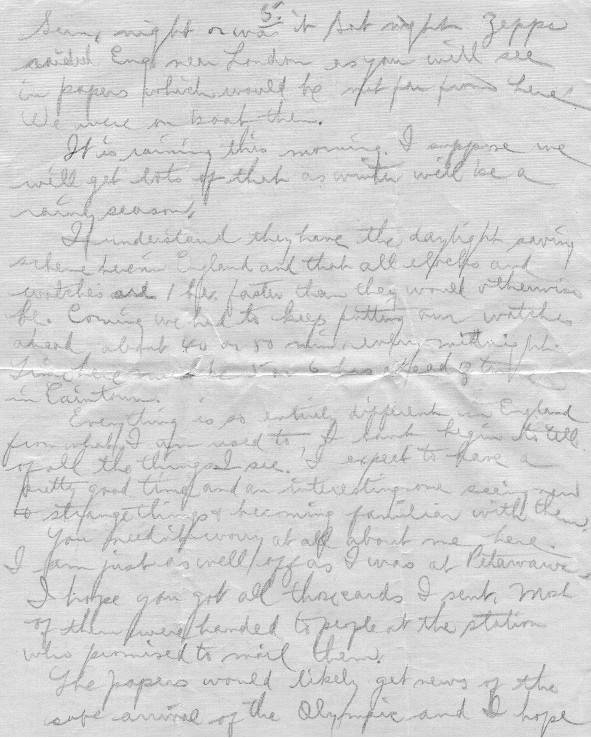 5.
Sun, night or was it Sat night Zepps
raided Eng near London as you will see
in papers which would be not far from here.
We were on boat then.
It is raining this morning. I suppose we
will get lots of that as winter will be a
rainy season.
I understand they have the daylight saving
scheme here in England and that all clocks and
watches are 1 hr. faster than they would otherwise
be. Coming we had to keep putting our watches
ahead about 40 or 50 min every midnight.
Time here must be 5 or 6 hrs ahead of time
in Caintown.
Everything is so entirely different in England
from what I am used to, I can't begin to tell
of all the things I see. I expect to have a
pretty good time and an interesting one seeing new
& strange things & becoming familiar with them.
You needn't worry at all about me here.
I am just as well off as I was at Petawawa.
I hope you got all those cards I sent. Most
of them were handed to people at the station
who promised to mail them.
The papers would likely get news of the
safe arrival of the Olympic and I hope